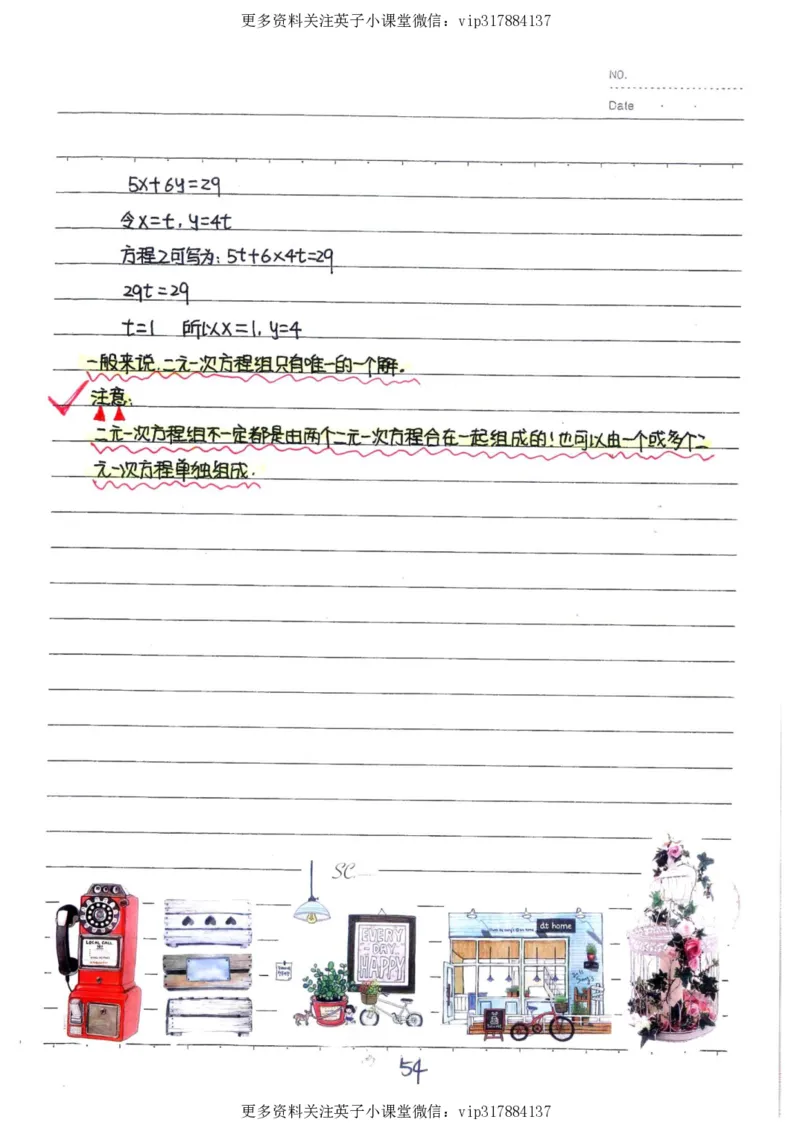 更多资料关注英子小课堂微信：vip317884137
NO.
Date
5x+6y=29
令x=t，y=4t
方程2可写为：5t+6×4t=29
29t=29
t=1 所以x=1，y=4
一般来说，二元一次方程组只有唯一的一个解。
注意：
二元一次方程组不一定都是由两个二元一次方程合在一起组成的！也可以由一个或多个二
元一次方程单独组成．
SC.
LOCAL CALL
EVERY
-DAY-
HAPPY
dt home
54
更多资料关注英子小课堂微信：vip317884137